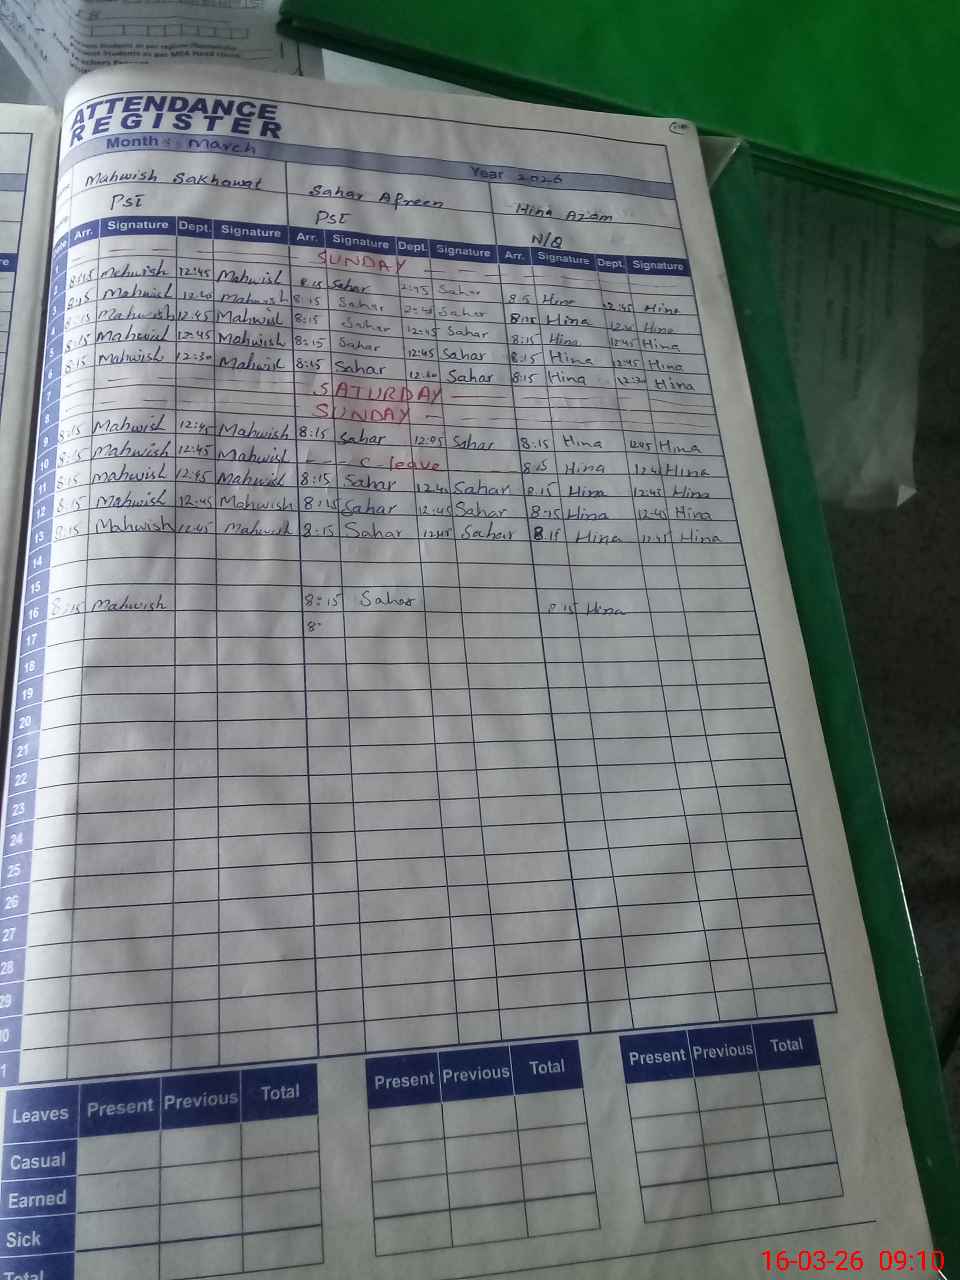 ATTENDANCE
REGISTER
Month: March Year 2026
Mahwish Sakhawat Sahar Afreen Hina Azam
PST PST N/Q
Arr. Signature Dept. Signature Arr. Signature Dept. Signature Arr. Signature Dept. Signature
1 SUNDAY
2 8:15 Mahwish 12:45 Mahwish 8:15 Sahar 12:45 Sahar 8:15 Hina 12:45 Hina
3 8:15 Mahwish Mahwish 8:15 Sahar Sahar 8:15 Hina Hina
4 8:15 Mahwish 12:45 Mahwish 8:15 Sahar 12:45 Sahar 8:15 Hina 12:45 Hina
5 8:15 Mahwish 12:45 Mahwish 8:15 Sahar 12:45 Sahar 8:15 Hina 12:45 Hina
6 8:15 Mahwish 12:30 Mahwish 8:15 Sahar 12:30 Sahar 8:15 Hina 12:30 Hina
7 SATURDAY
8 SUNDAY
9 8:15 Mahwish 12:45 Mahwish 8:15 Sahar Sahar 8:15 Hina Hina
10 8:15 Mahwish 12:45 Mahwish C leave 8:15 Hina Hina
11 8:15 Mahwish 12:45 Mahwish 8:15 Sahar 12:45 Sahar 8:15 Hina 12:45 Hina
12 8:15 Mahwish 12:45 Mahwish 8:15 Sahar 12:45 Sahar 8:15 Hina 12:40 Hina
13 8:15 Mahwish 12:45 Mahwish 8:15 Sahar Sahar 8:15 Hina 12:45 Hina
14
15
16 8:15 Mahwish 8:15 Sahar 8:15 Hina
17 8:
18
19
20
21
22
23
24
25
26
27
28
29
Leaves Present Previous Total Present Previous Total Present Previous Total
Casual
Earned
Sick
Total
16-03-26 09:10